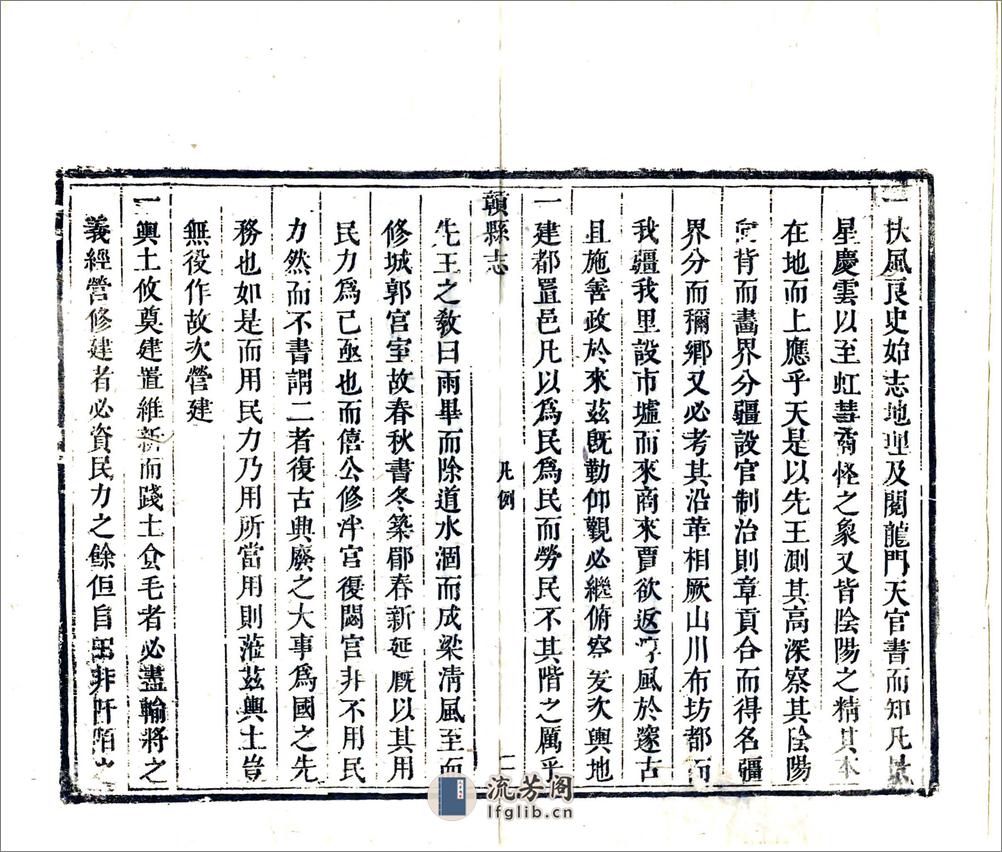 一扶風良史始志地理及閱龍門天官書而知凡景
星慶雲以至虹彗矞怪之象又皆陰陽之精其本
在地而上應乎天是以先王測其高深察其陰陽
背而畫界分疆設官制治則章貢合而得名疆
界分而彌鄉又必考其沿革相厥山川布坊都而
我疆我里設市墟而來商來賈欲返淳風於邃古
且施善政於來茲既勤仰觀必繼俯察爰次輿地
一建都置邑凡以為民為民而勞民不其階之厲乎
贛縣志
凡例
二
先王之敎曰雨畢而除道水涸而成梁清風至而
修城郭宮室故春秋書冬築郿春新延厩以其用
民力為已亟也而僖公修泮宮復閟宮非不用民
力然而不書謂二者復古典廢之大事為國之先
務也如是而用民力乃用所當用則蒞茲輿土豈
無役作故次營建
一輿土攸奠建置維新而踐土食毛者必盡輸將之
義經營修建者必資民力之餘但自井阡陌之
流芳阁
lfglib.cn